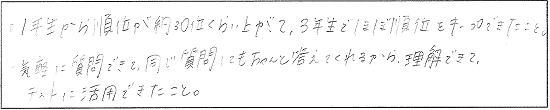 1年生から順位が約30位くらい上がって、3年生でほぼ順位をキープできたこと。
気軽に質問できて、同じ質問してもちゃんと答えてくれるから、理解できて、
テストに活用できたこと。